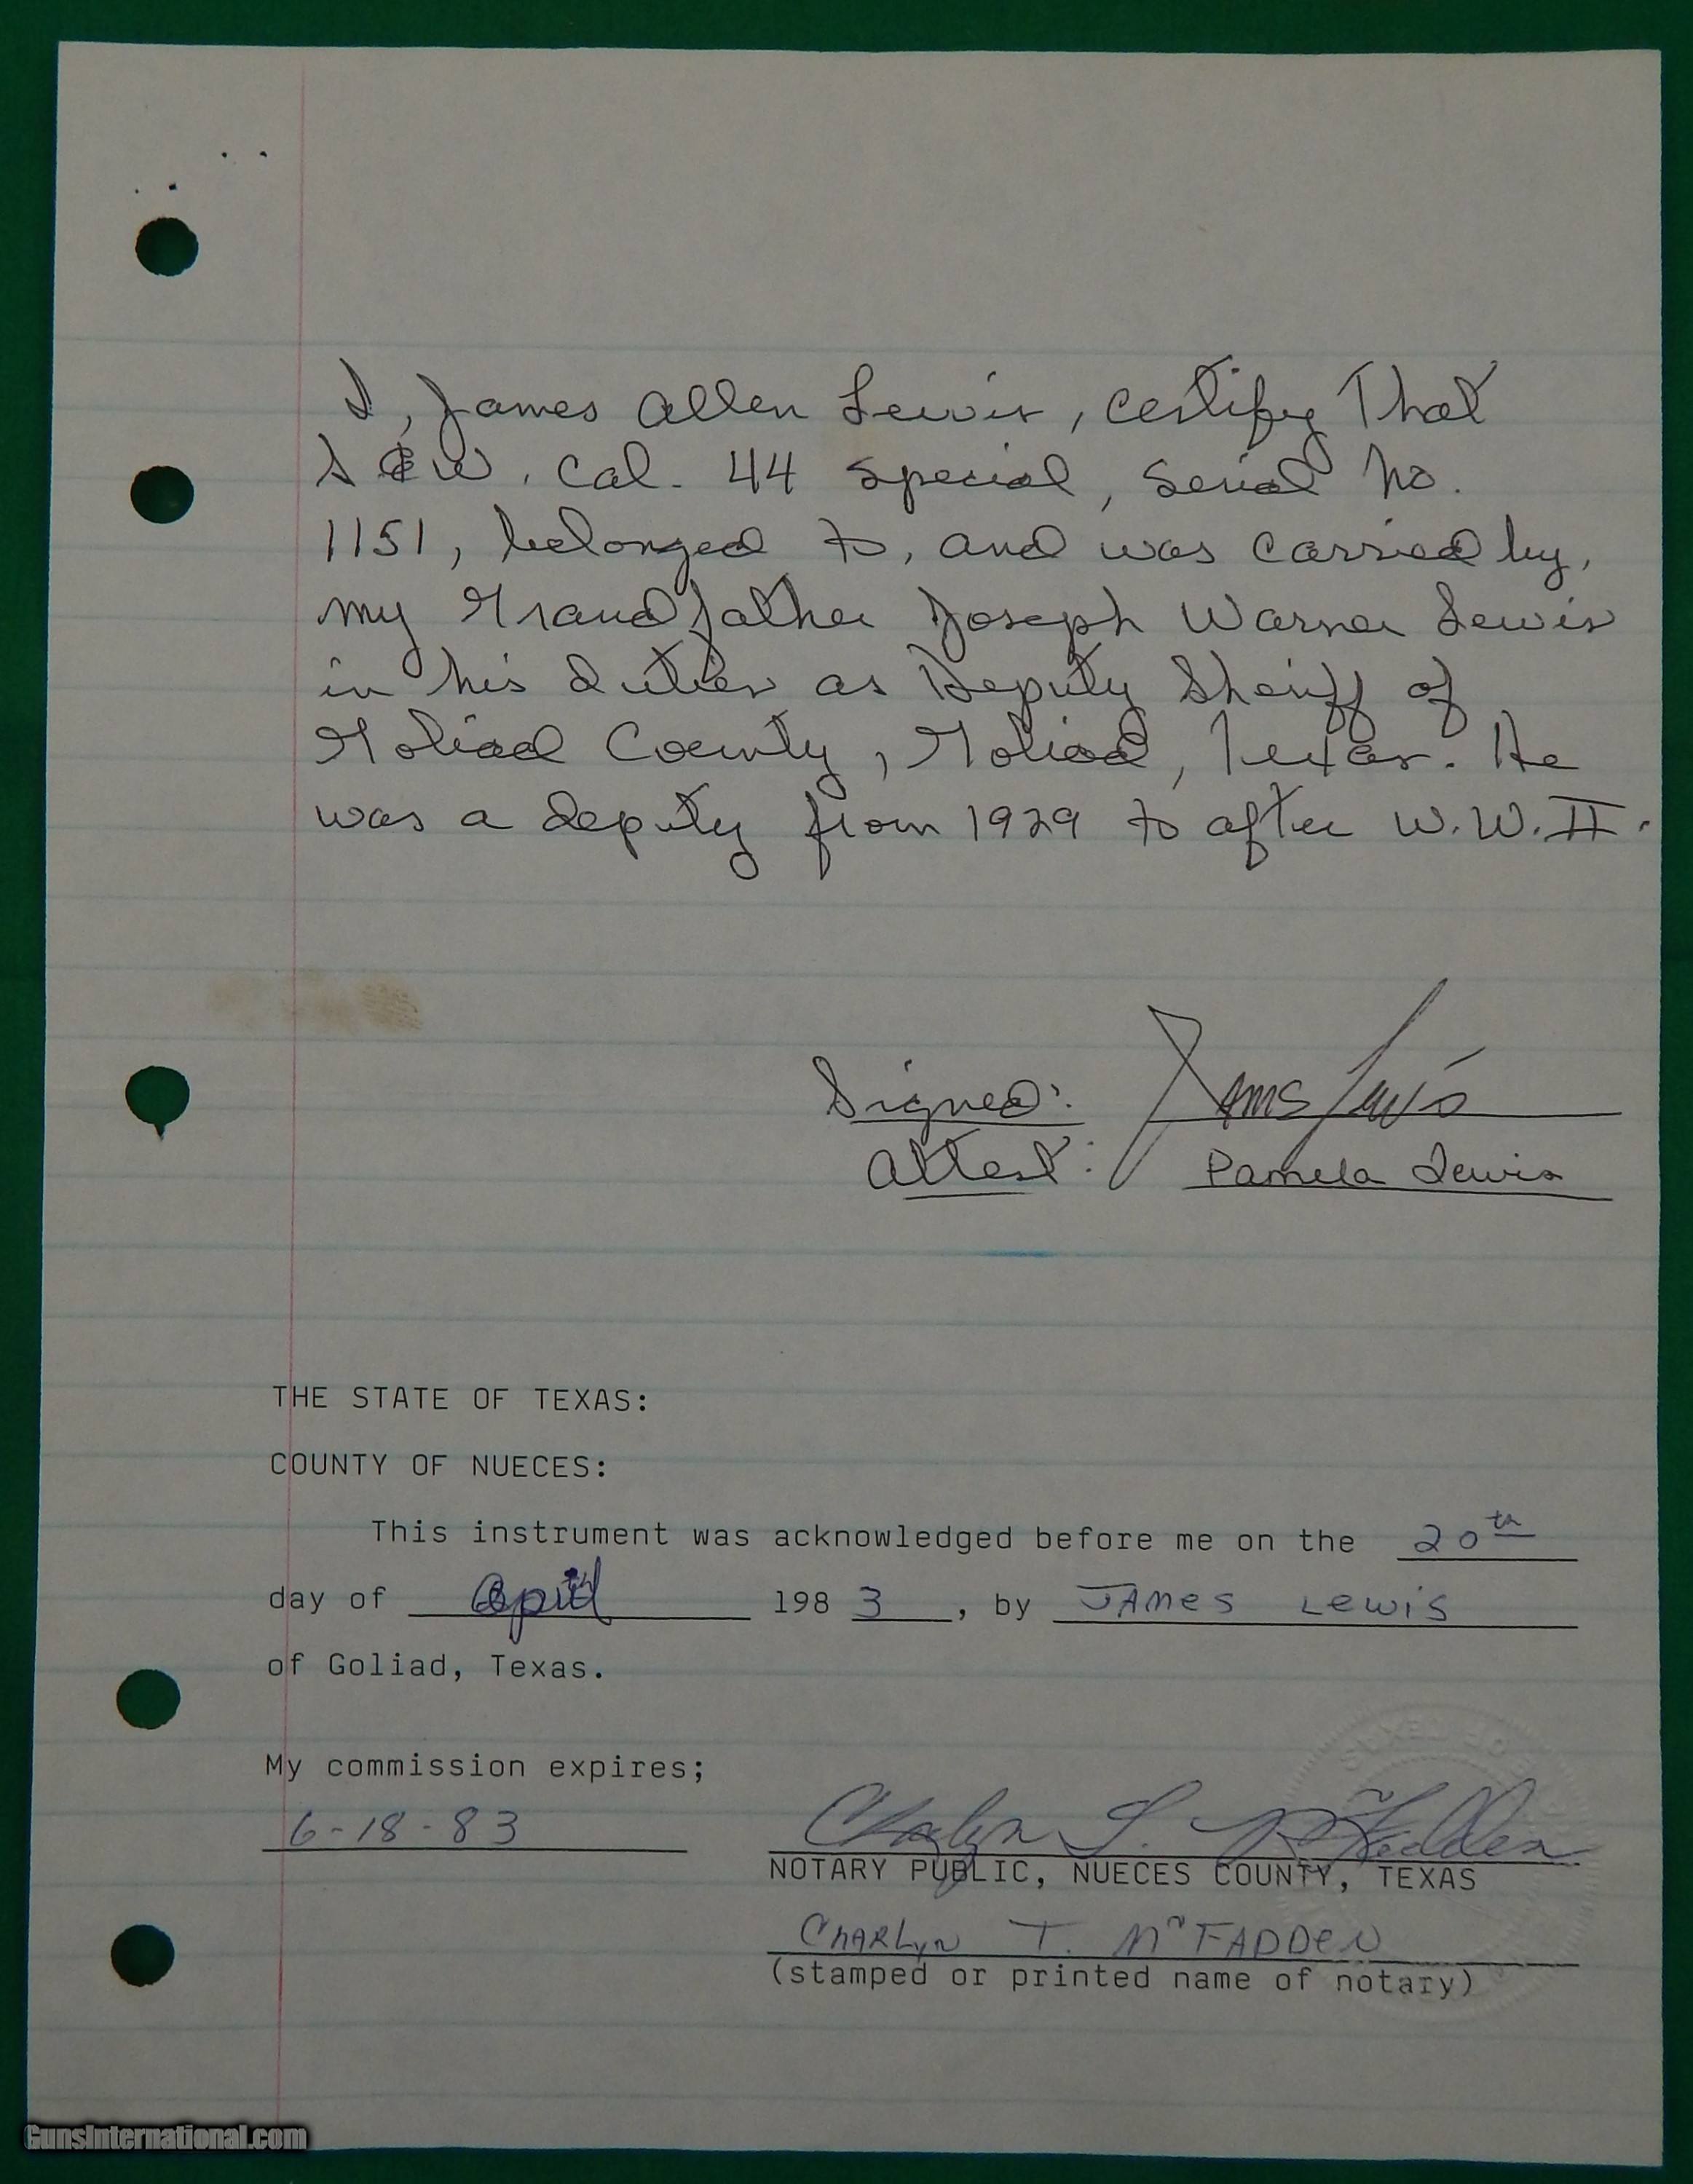 I, James Allen Lewis, certify That
S & W. Cal. 44 Special, Serial No.
1151, belonged to, and was carried by,
my Grandfather Joseph Warner Lewis
in his duties as Deputy Sheriff of
Goliad County, Goliad, Texas. He
was a deputy from 1929 to after W.W. II.
Signed: James Lewis
Attest: Pamela Lewis
THE STATE OF TEXAS:
COUNTY OF NUECES:
This instrument was acknowledged before me on the 20th
day of April 1983, by JAMES LEWIS
of Goliad, Texas.
My commission expires;
6-18-83
Charlyn T. McFadden
NOTARY PUBLIC, NUECES COUNTY, TEXAS
CHARLYN T. McFADDEN
(stamped or printed name of notary)
OF TEXAS
GunsInternational.com